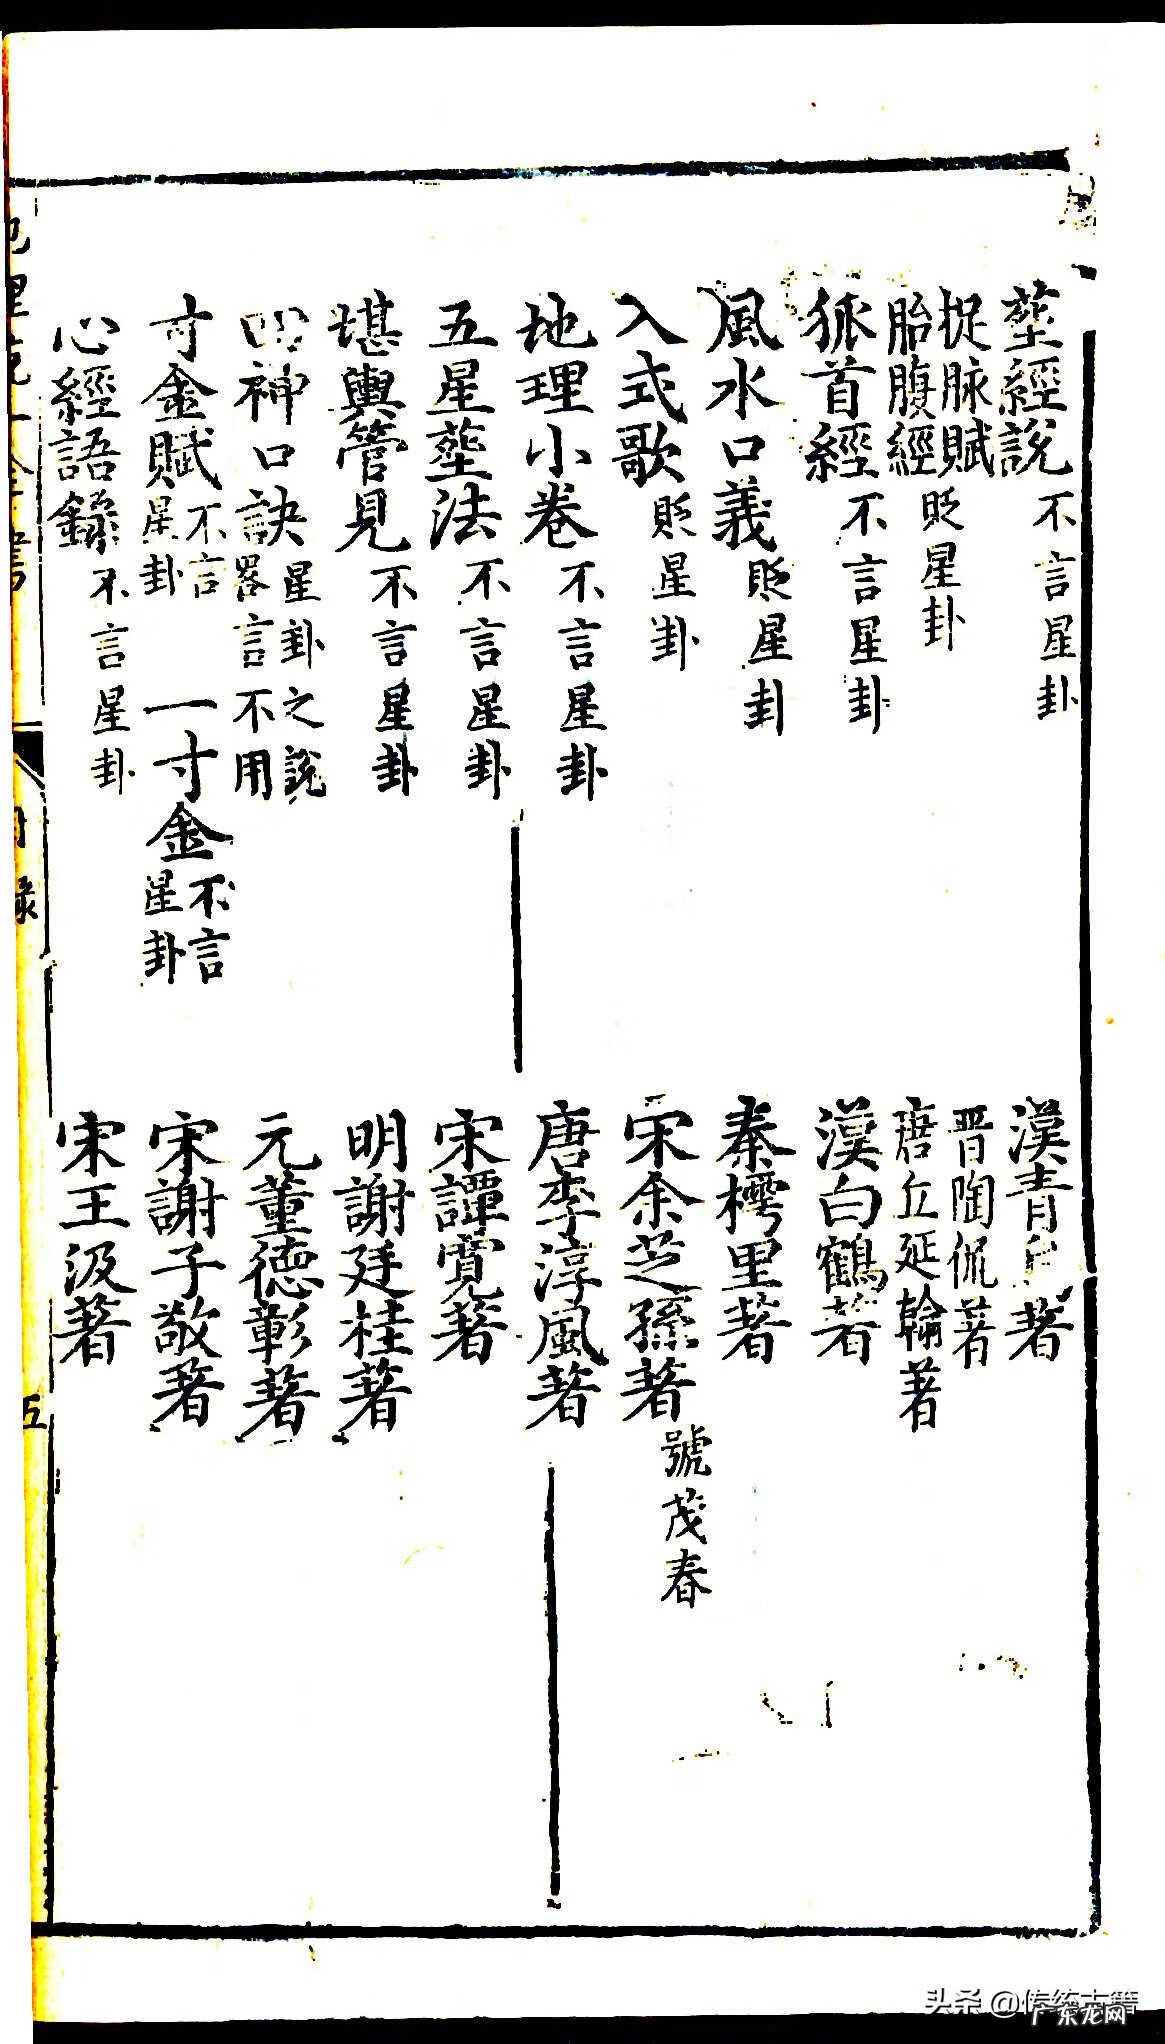 塟經說 不言星卦 漢青烏著
捉脉賦 晋陶侃著
胎腹經 貶星卦 唐丘延翰著
狐首經 不言星卦 漢白鶴著
風水口義 貶星卦 秦樗里著
入式歌 貶星卦 宋余芝孫著 號茂春
地理小卷 不言星卦 唐李淳風著
五星塟法 不言星卦 宋譚寬著
堪輿管見 不言星卦 明謝廷桂著
神口訣 星卦之說畧言不用 元董德彰著
寸金賦 不言星卦 一寸金 不言星卦 宋謝子敬著
心經語錄 不言星卦 宋王汲著
目錄
五
头条 @传统古籍
广东龙网